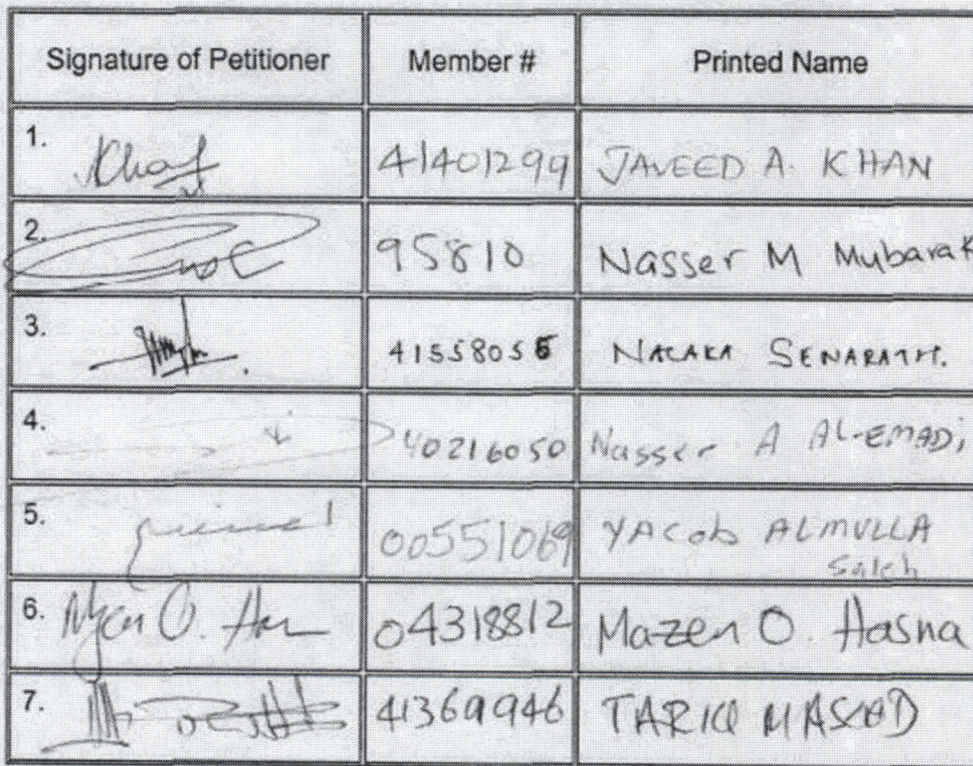 Signature of Petitioner Member # Printed Name
1. Khan 41401299 JAVEED A. KHAN
2. 95810 Nasser M Mubarak
3. 41558055 NALAKA SENARATH.
4. 40216050 Nasser A AL-EMADi
5. 00551069 YACob ALMULLA
Saleh
6. Mazen O. Has 04318812 Mazen O. Hasna
7. 41369946 TARIQ MASOOD